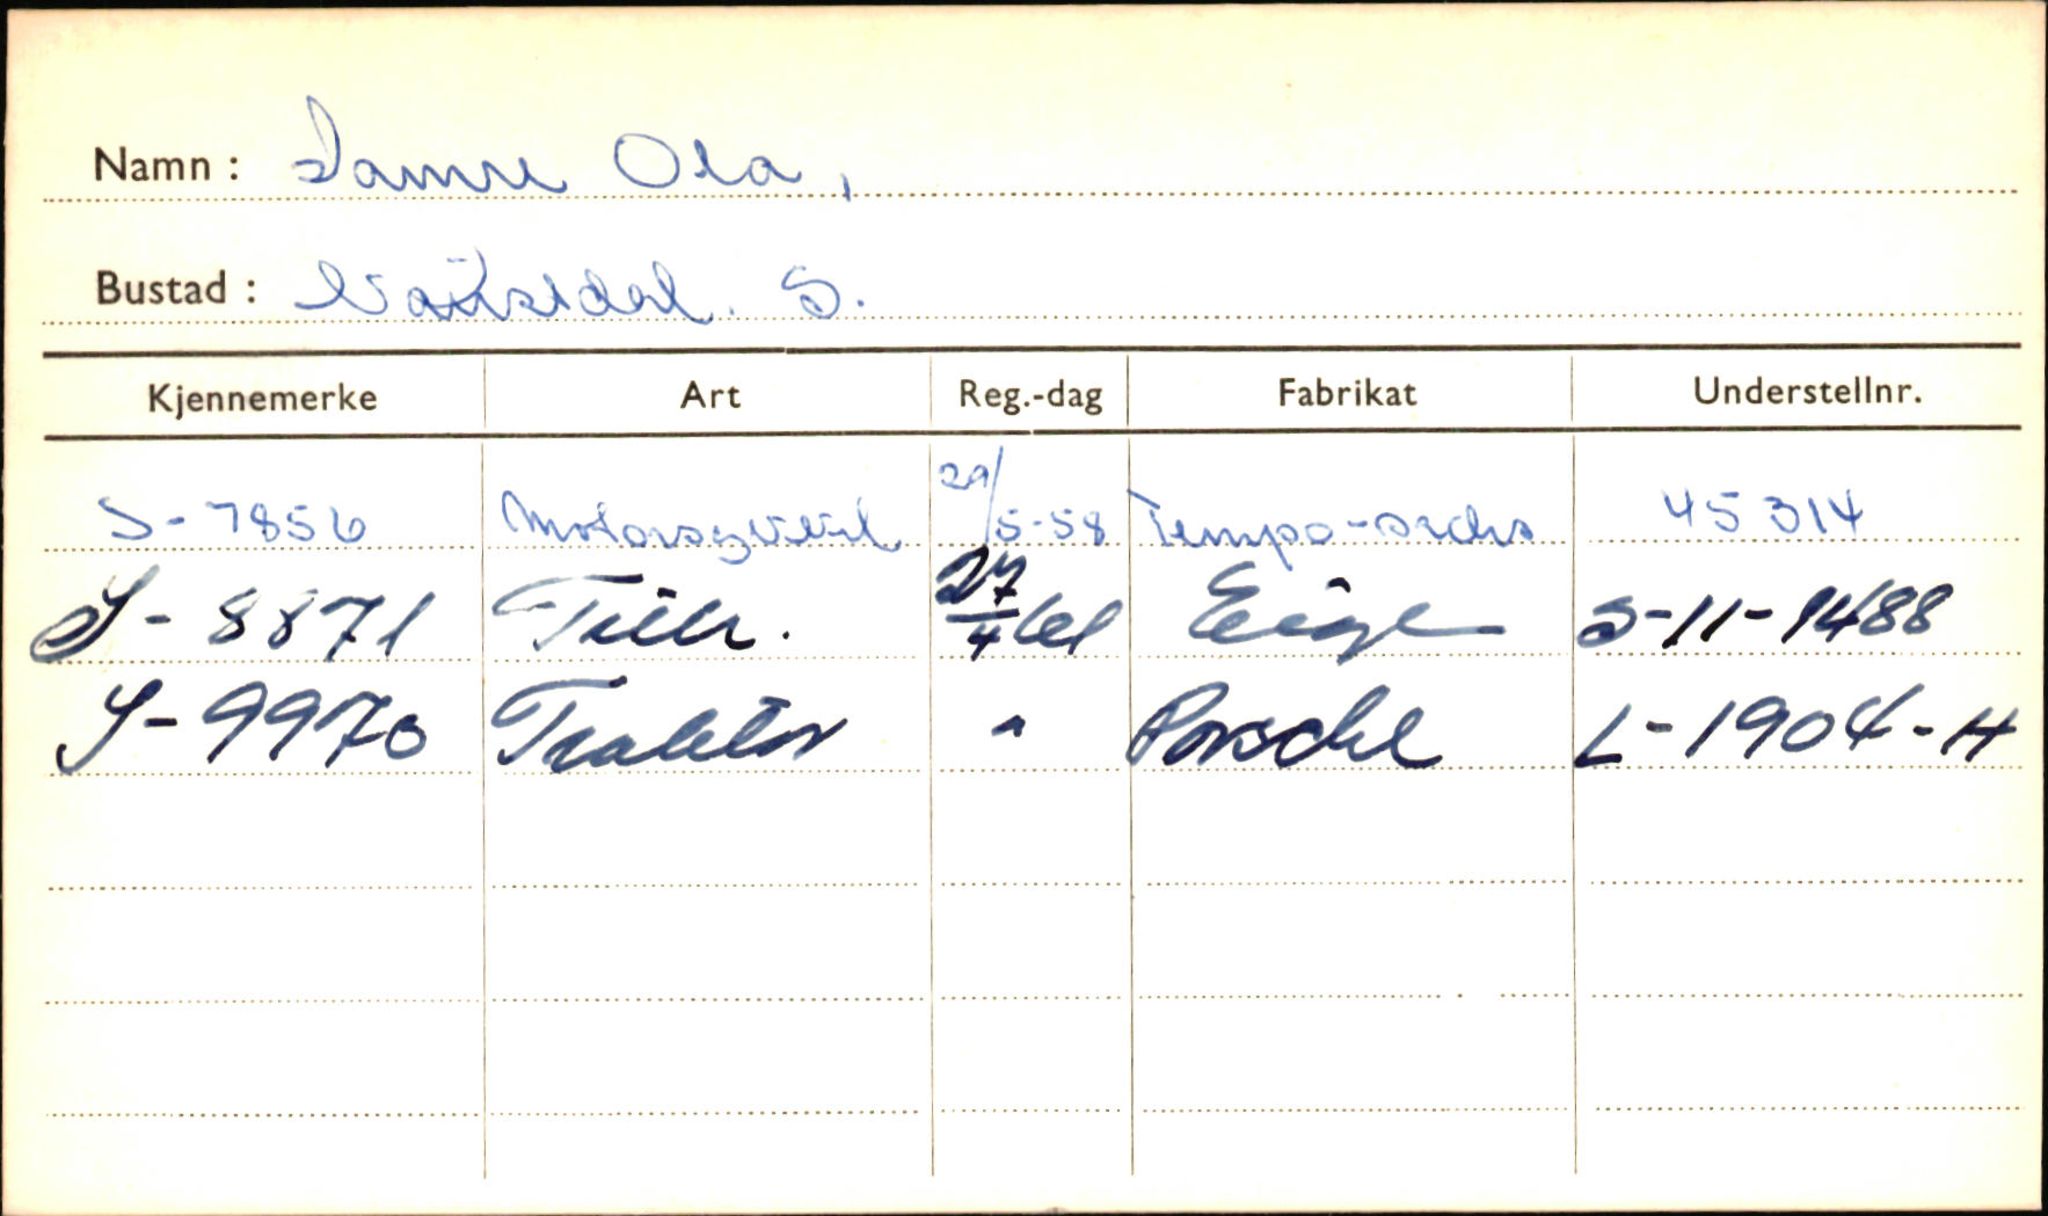 Namn : Samre Ola,
Bustad : S.
Kjennemerke Art Reg.-dag Fabrikat Understellnr.
S-7856 Motorsykkel 29/5-58 Tempo-sachs 45314
S-8871 Tilh. 27/4 61 Eige S-11-1488
S-9970 Traktor " Porsche L-1904-H